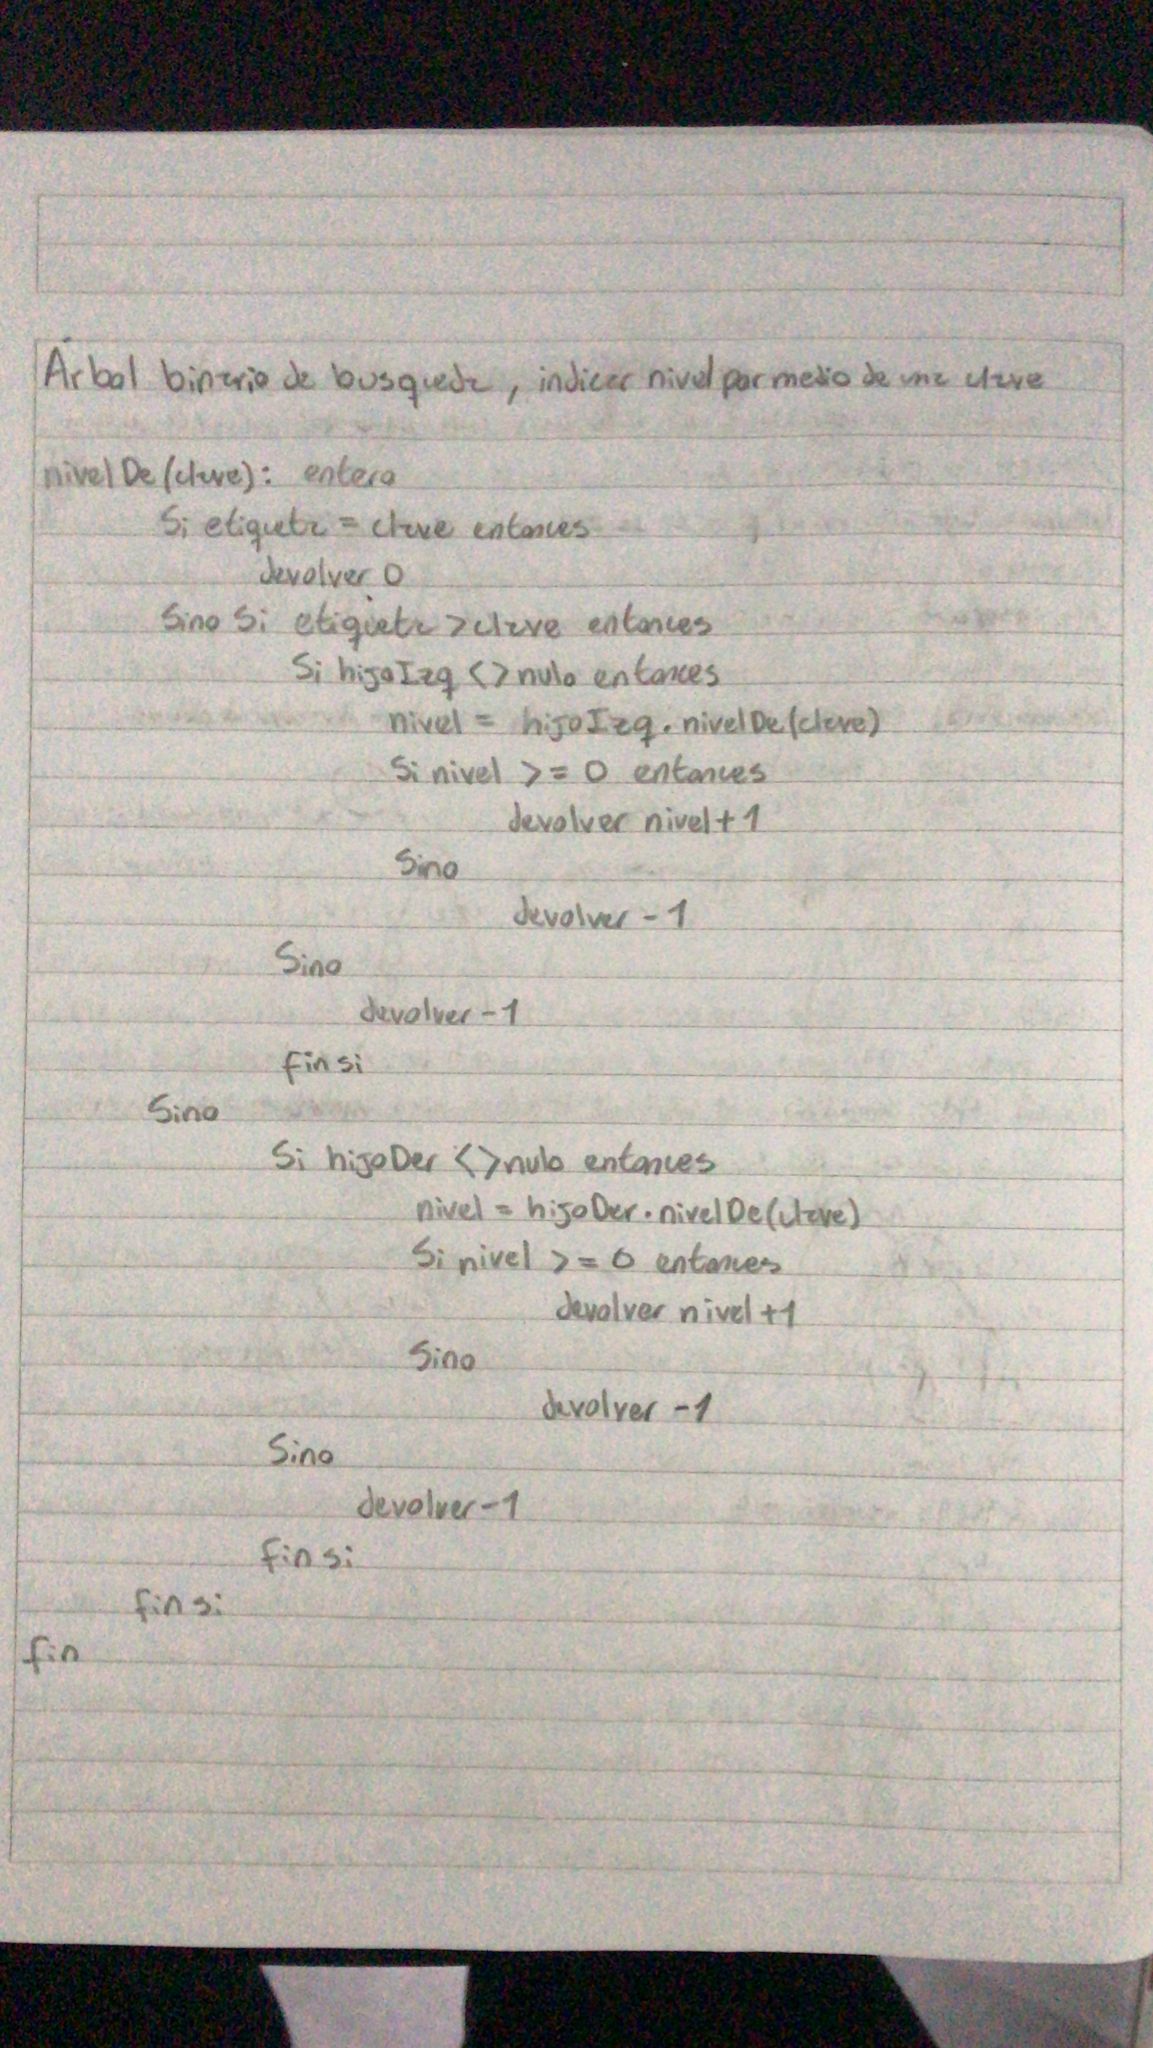 Árbol binario de busqueda, indicar nivel por medio de una clave
nivelDe(clave): entero
Si etiqueta = clave entonces
devolver 0
Sino Si etiqueta > clave entonces
Si hijoIzq <> nulo entonces
nivel = hijoIzq.nivelDe(clave)
Si nivel >= 0 entonces
devolver nivel+1
Sino
devolver -1
Sino
devolver -1
fin si
Sino
Si hijoDer <> nulo entonces
nivel = hijoDer.nivelDe(clave)
Si nivel >= 0 entonces
devolver nivel+1
Sino
devolver -1
Sino
devolver -1
fin si
fin si
fin